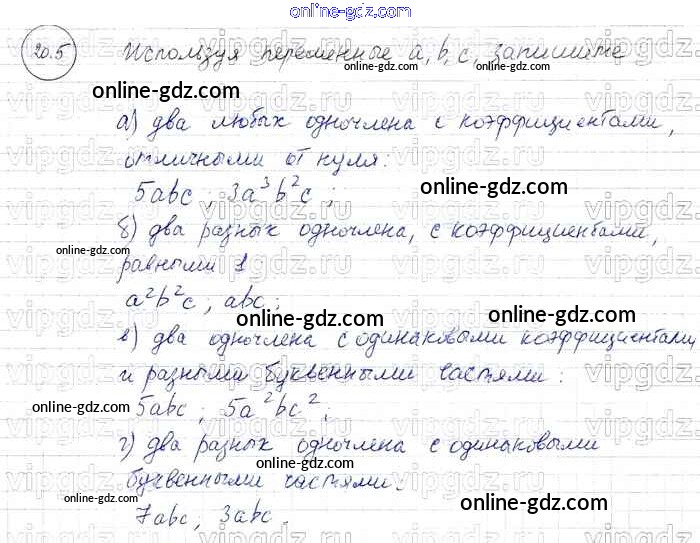 online-gdz.com
20.5 Используя переменные a, b, c, запишите
online-gdz.com
а) два любых одночлена с коэффициентами,
отличными от нуля:
5abc ; 3a³b²c ;
online-gdz.com
б) два разных одночлена, с коэффициентами,
online-gdz.com
равными 1
a²b²c ; abc ;
online-gdz.com
online-gdz.com
в) два одночлена с одинаковыми коэффициентами
и разными буквенными частями :
5abc ; 5a²bc² ;
online-gdz.com
online-gdz.com
г) два разных одночлена с одинаковыми
буквенными частями.
online-gdz.com
online-gdz.com
online-gdz.com
7abc ; 3abc .
online-gdz.com